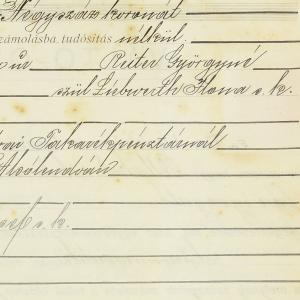 Négyszáz koronát
számolásba, tudósítás nélkül.
ur Reiter Györgyné
szül Liebwerth Ilona s. k.
Takarékpénztárnál
s. k.